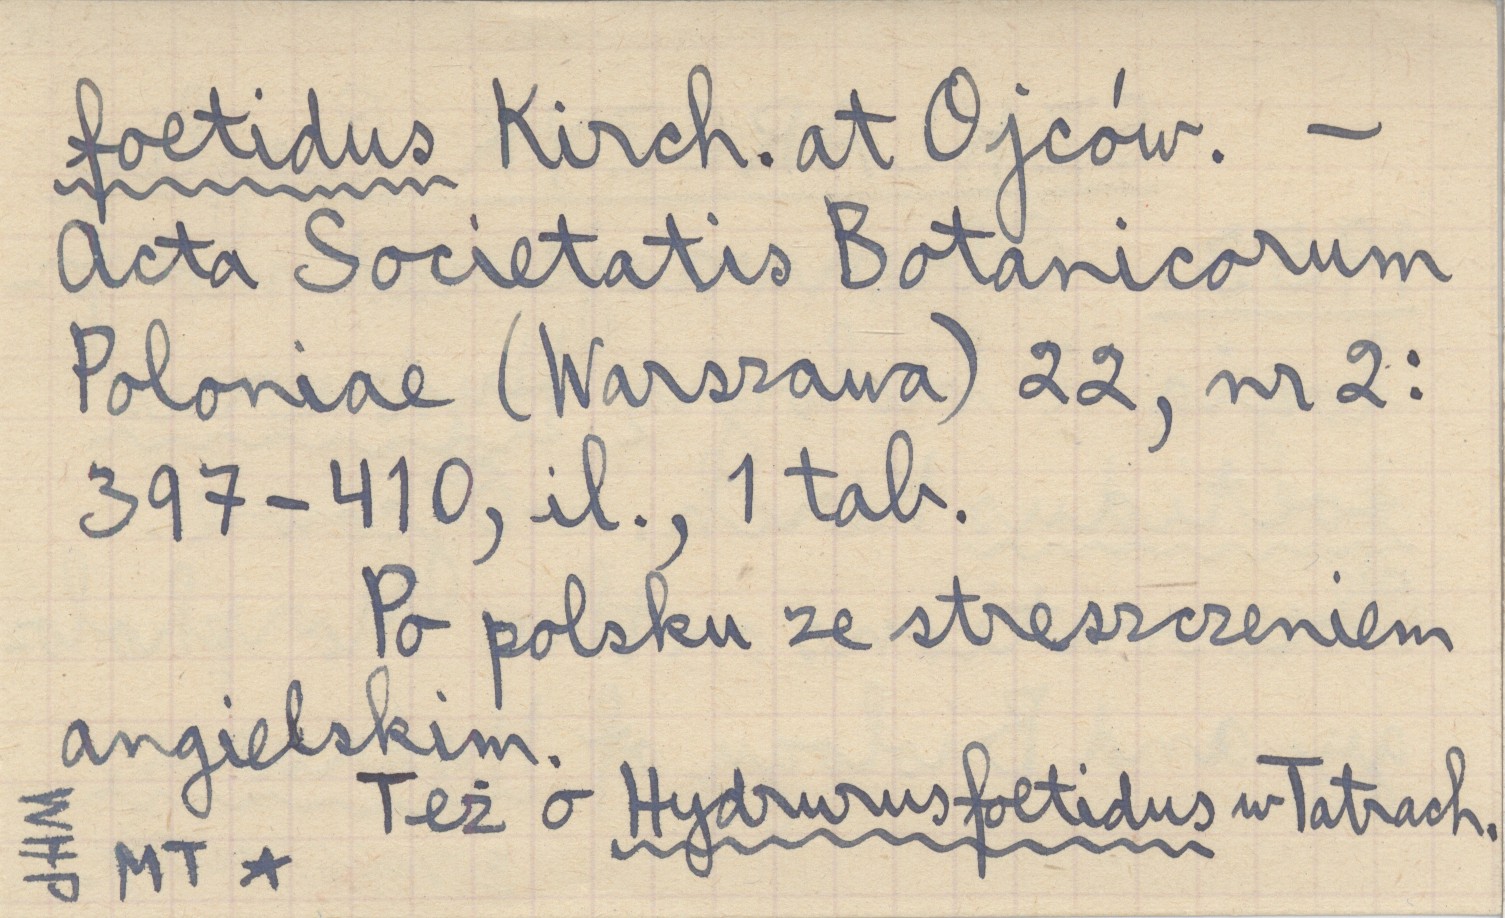 foetidus Kirch. at Ojców. —
Acta Societatis Botanicorum
Poloniae (Warszawa) 22, nr 2:
397-410, il., 1 tab.
Po polsku ze streszczeniem
angielskim.
Też o Hydrurus foetidus w Tatrach.
WHP
MT ★